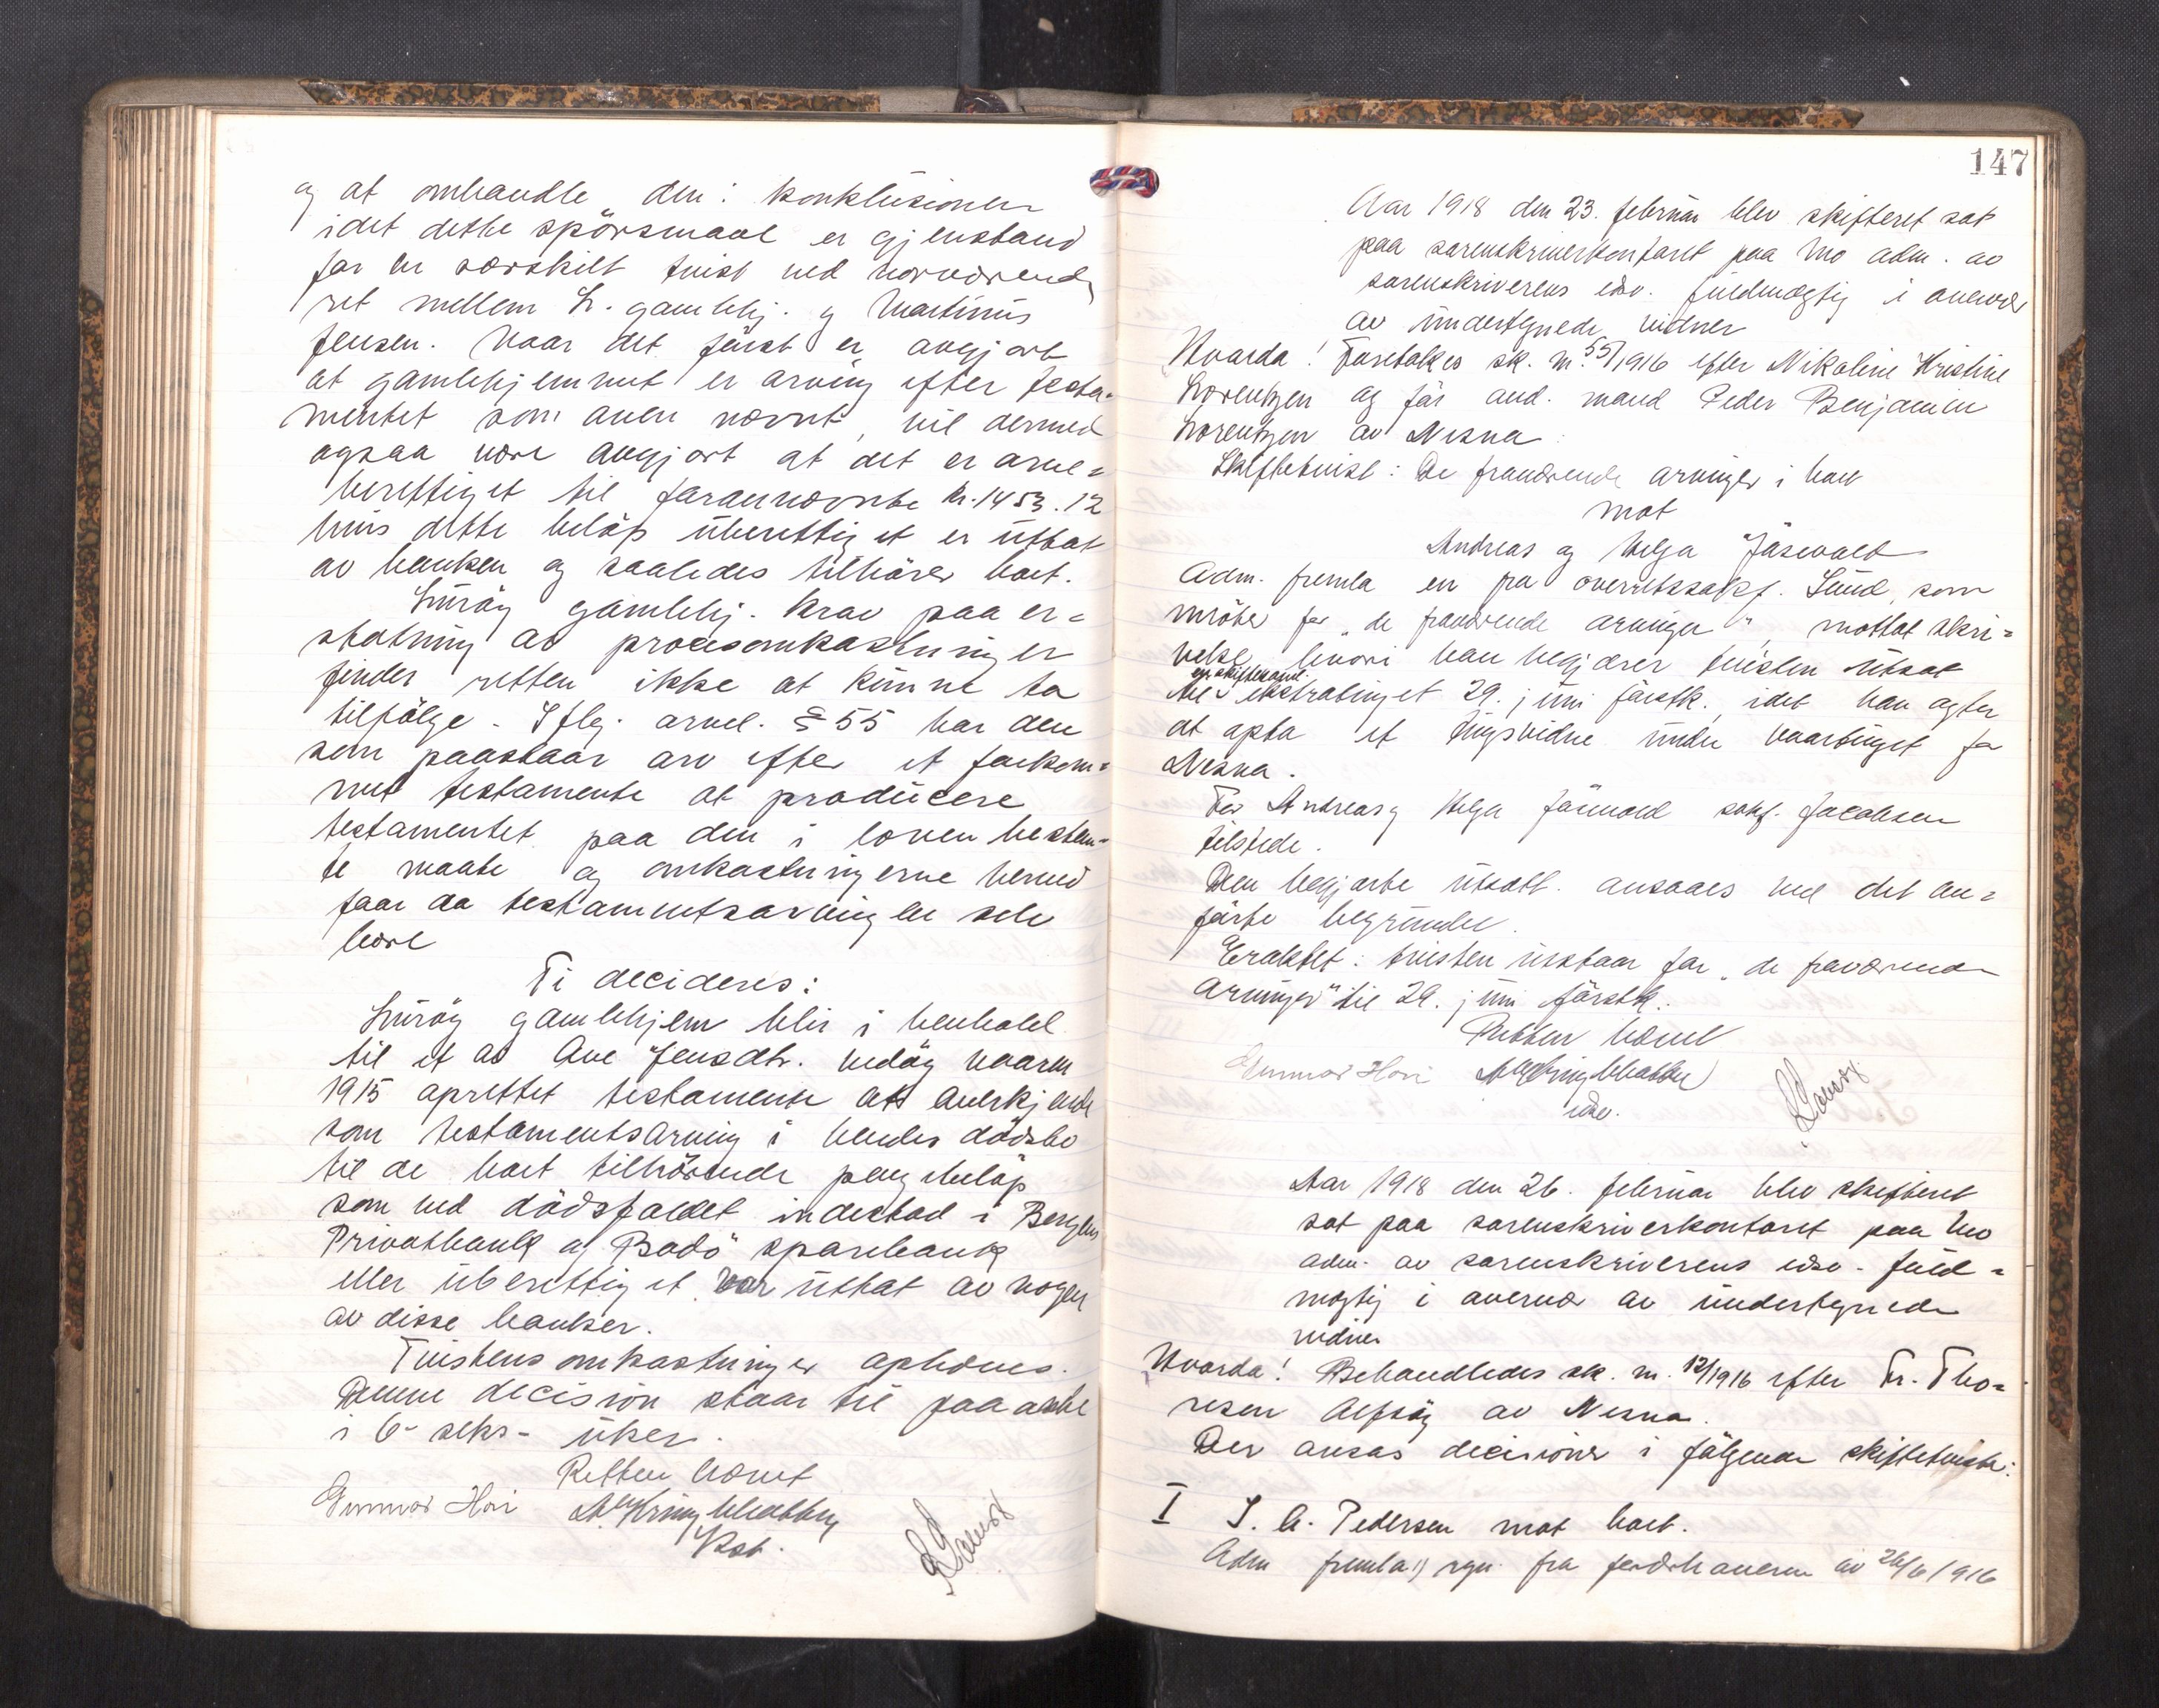 og at omhandle den i konklusionen
idet dette spörsmaal er gjenstand
for en særskilt tvist ved nærværende
ret mellem L. gamlehj. og Martinus
Jensen. Naar det först er avgjort
at gamlehjemmet er arving efter testa-
mentet som oven nævnt, vil dermed
ogsaa være avgjort at det er arve-
berettiget til forannævnte kr. 1453.12
hvis dette belöp uberettiget er uthat
av banken og saaledes tilhörer boet.
Luröy gamlehj. krav paa er-
statning av procesomkostninger
finder retten ikke at kunne ta
tilfölge. Iflg. arvel. § 55 har den
som paastaar arv efter et forkom-
met testamente at producere
testamentet paa den i loven bestem-
te maate og omkostningerne herved
faar da testamentsarvingen selv
bære
Ti decideres:
Luröy gamlehjem blir i henhold
til et av Ane Jensdtr. Nedöy vaaren
1915 oprettet testamente at anerkjende
som testamentsarving i hendes dödsbo
til de boet tilhörende pengebelöp
som ved dödsfaldet indestod i Bergens
Privatbank og Bodö sparebank
eller uberettiget var uthat av nogen
av disse banker.
Tvistens omkostninger ophæves.
Denne decision staar til paaanke
i 6- seks- uker.
Retten hævet
Gunnar Hovi
Kst.
147
Aar 1918 den 23. februar blev skifteret sat
paa sorenskriverkontoret paa Mo adm. av
sorenskriverens edsv. fuldmægtig i overvær
av undertegnede vidner
Hvorda! Foretokes sk. nr. 55/1916 efter Nikoline Kristine
Lorentzen og för avd. mand Peder Benjamin
Lorentzen av Nesna:
Skiftetvist: De fraværende arvinger i boet
mot
Andreas og Helga Jäsevold
Adm. fremla en fra overretssakf. Lund, som
möter for "de fraværende arvinger", mottat skri-
velse hvori han begjærer tvisten utsat
til ekstratinget 29. juni förstk., idet han agter
at opta et tingsvidne under vaartinget for
Nesna.
For Andreas og Helga sakf. Jacobsen
tilstede.
Den begjærte utsætt. ansaaes ved det an-
förte begrundet.
Eraktet: tvisten utstaar for "de fraværende
arvinger" til 29. juni förstk.
Retten hævet
Gunnar Hovi
edsv.
Aar 1918 den 26. februar blev skifteret
sat paa sorenskriverkontoret paa Mo
adm. av sorenskriverens edsv. fuld-
mægtig i overvær av undertegnede
vidner
Hvorda! Behandledes sk. nr. 12/1916 efter Fr. Tho-
resen Alfsöy av Nesna.
Der avsas decisioner i fölgende skiftetviste:
I S. A. Pedersen mot boet.
Adm fremla 1) regn. fra fordrhaveren av 26/6 1916